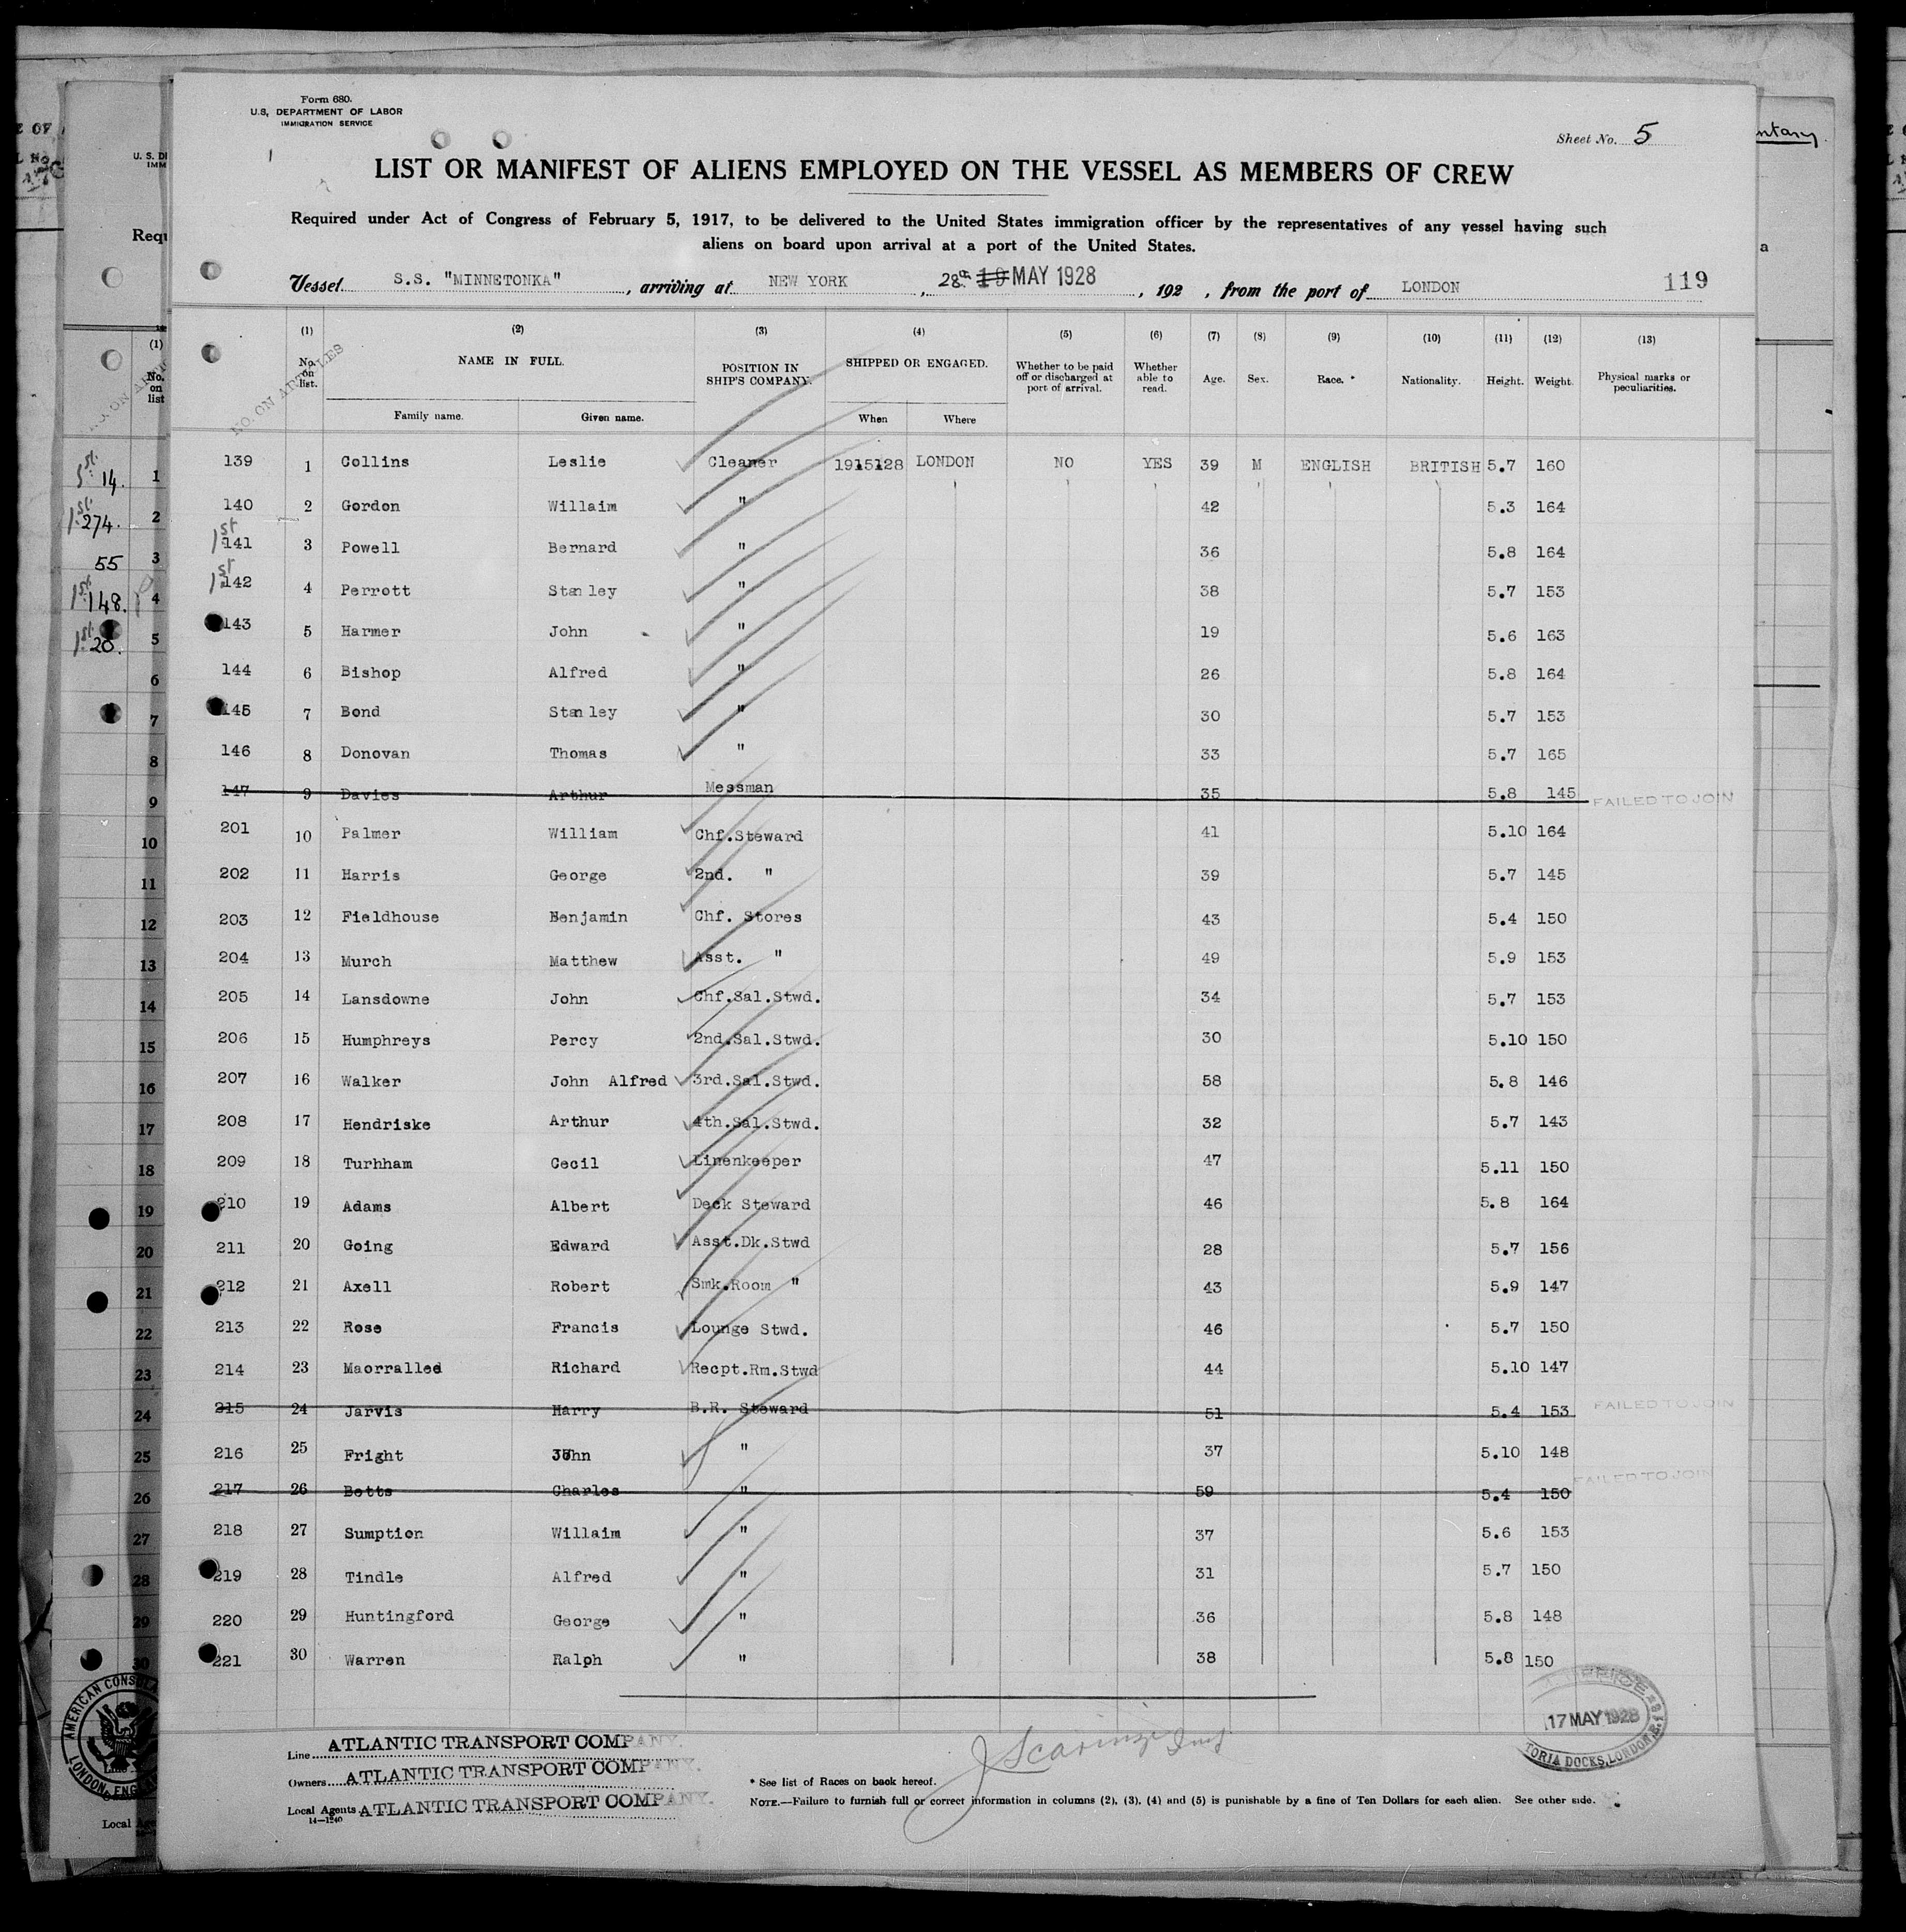 Form 680.
U.S. DEPARTMENT OF LABOR
IMMIGRATION SERVICE
Sheet No. 5
LIST OR MANIFEST OF ALIENS EMPLOYED ON THE VESSEL AS MEMBERS OF CREW
Required under Act of Congress of February 5, 1917, to be delivered to the United States immigration officer by the representatives of any vessel having such
aliens on board upon arrival at a port of the United States.
Vessel S.S. "MINNETONKA", arriving at NEW YORK, 28th 19 MAY 1928, 192 , from the port of LONDON 119
(1) (2) (3) (4) (5) (6) (7) (8) (9) (10) (11) (12) (13)
NO. ON ARTICLES No. on list. NAME IN FULL. POSITION IN SHIP'S COMPANY. SHIPPED OR ENGAGED. Whether to be paid off or discharged at port of arrival. Whether able to read. Age. Sex. Race.* Nationality. Height. Weight. Physical marks or peculiarities.
Family name. Given name. When Where
139 1 Collins Leslie Cleaner 1915128 LONDON NO YES 39 M ENGLISH BRITISH 5.7 160
140 2 Gordon Willaim " 42 5.3 164
1st 141 3 Powell Bernard " 36 5.8 164
1st 142 4 Perrott Stanley " 38 5.7 153
143 5 Harmer John " 19 5.6 163
144 6 Bishop Alfred " 26 5.8 164
145 7 Bond Stanley " 30 5.7 153
146 8 Donovan Thomas " 33 5.7 165
147 9 Davies Arthur Messman 35 5.8 145 FAILED TO JOIN
201 10 Palmer William Chf.Steward 41 5.10 164
202 11 Harris George 2nd. " 39 5.7 145
203 12 Fieldhouse Benjamin Chf. Stores 43 5.4 150
204 13 Murch Matthew Asst. " 49 5.9 153
205 14 Lansdowne John Chf.Sal.Stwd. 34 5.7 153
206 15 Humphreys Percy 2nd.Sal.Stwd. 30 5.10 150
207 16 Walker John Alfred 3rd.Sal.Stwd. 58 5.8 146
208 17 Hendriske Arthur 4th.Sal.Stwd. 32 5.7 143
209 18 Turhham Cecil Linenkeeper 47 5.11 150
210 19 Adams Albert Deck Steward 46 5.8 164
211 20 Going Edward Asst.Dk.Stwd 28 5.7 156
212 21 Axell Robert Smk.Room " 43 5.9 147
213 22 Rose Francis Lounge Stwd. 46 5.7 150
214 23 Maorralled Richard Recpt.Rm.Stwd 44 5.10 147
215 24 Jarvis Harry B.R. Steward 51 5.4 153 FAILED TO JOIN
216 25 Fright John " 37 5.10 148
217 26 Betts Charles " 59 5.4 150 FAILED TO JOIN
218 27 Sumption Willaim " 37 5.6 153
219 28 Tindle Alfred " 31 5.7 150
220 29 Huntingford George " 36 5.8 148
221 30 Warren Ralph " 38 5.8 150
17 MAY 1928
TORIA DOCKS, LONDON
Line ATLANTIC TRANSPORT COMPANY.
Owners ATLANTIC TRANSPORT COMPANY.
Local Agents ATLANTIC TRANSPORT COMPANY.
14—1240
* See list of Races on back hereof.
NOTE.—Failure to furnish full or correct information in columns (2), (3), (4) and (5) is punishable by a fine of Ten Dollars for each alien. See other side.